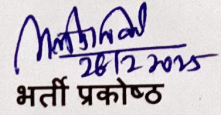 26/2/2025
भर्ती प्रकोष्ठ